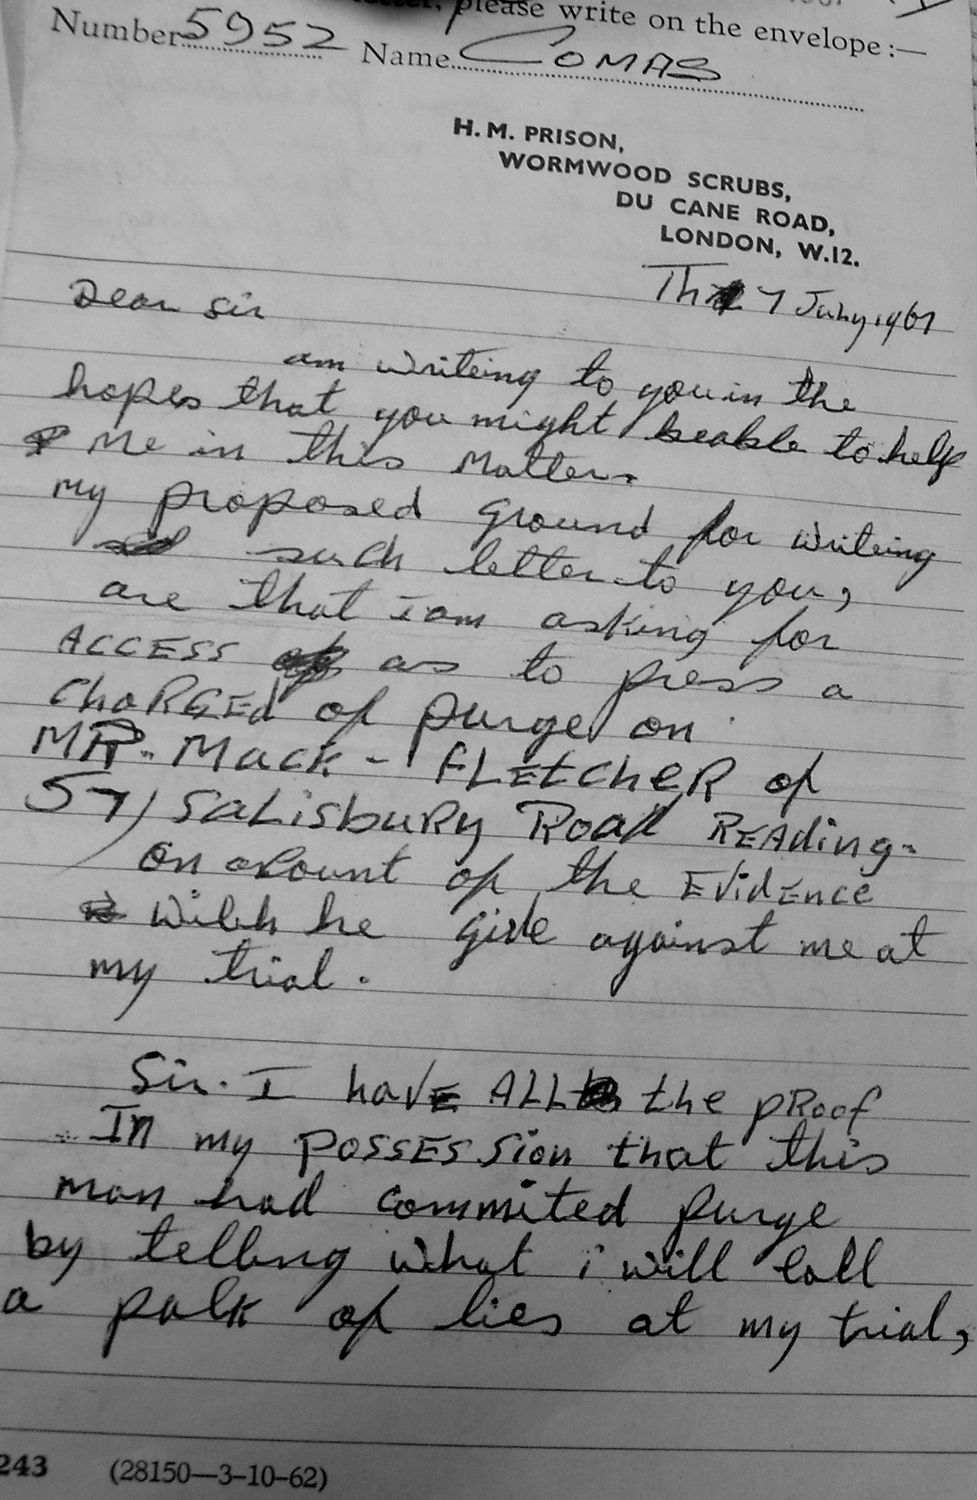 letter, please write on the envelope :—
Number 5952 Name COMAS
H. M. PRISON,
WORMWOOD SCRUBS,
DU CANE ROAD,
LONDON, W.12.
7 July, 1967
Dear Sir
am writeing to you in the
hopes that you might beable to help
Me in this Matter.
My proposed Ground for writeing
such letter to you,
are that i am asking for
ACCESS as to press a
ChARGEd of purge on
MR. Mack - FLEtcheR of
57, SaLisbuRy Road READing.
on acount of the EvidEnce
wihh he give against me at
my trial.
Sir. I havE ALL the pRoof
In my POSSESSion that this
man had commited purge
by telling what i will call
a pak of lies at my trial,
243 (28150—3-10-62)